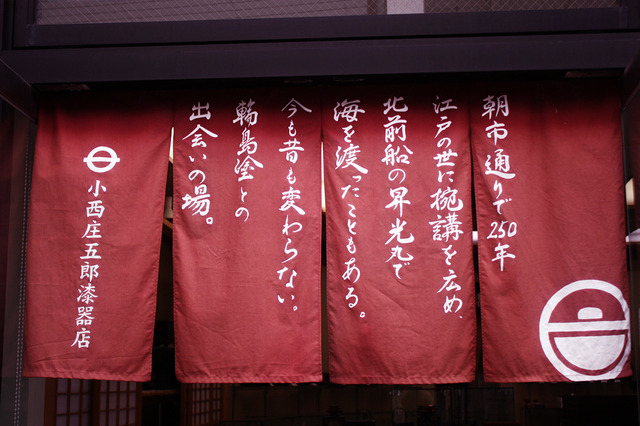 朝市通りで250年
江戸の世に椀講を広め、
北前船の昇光丸で
海を渡ったこともある。
今も昔も変わらない。
輪島塗との
出会いの場。
小西庄五郎漆器店